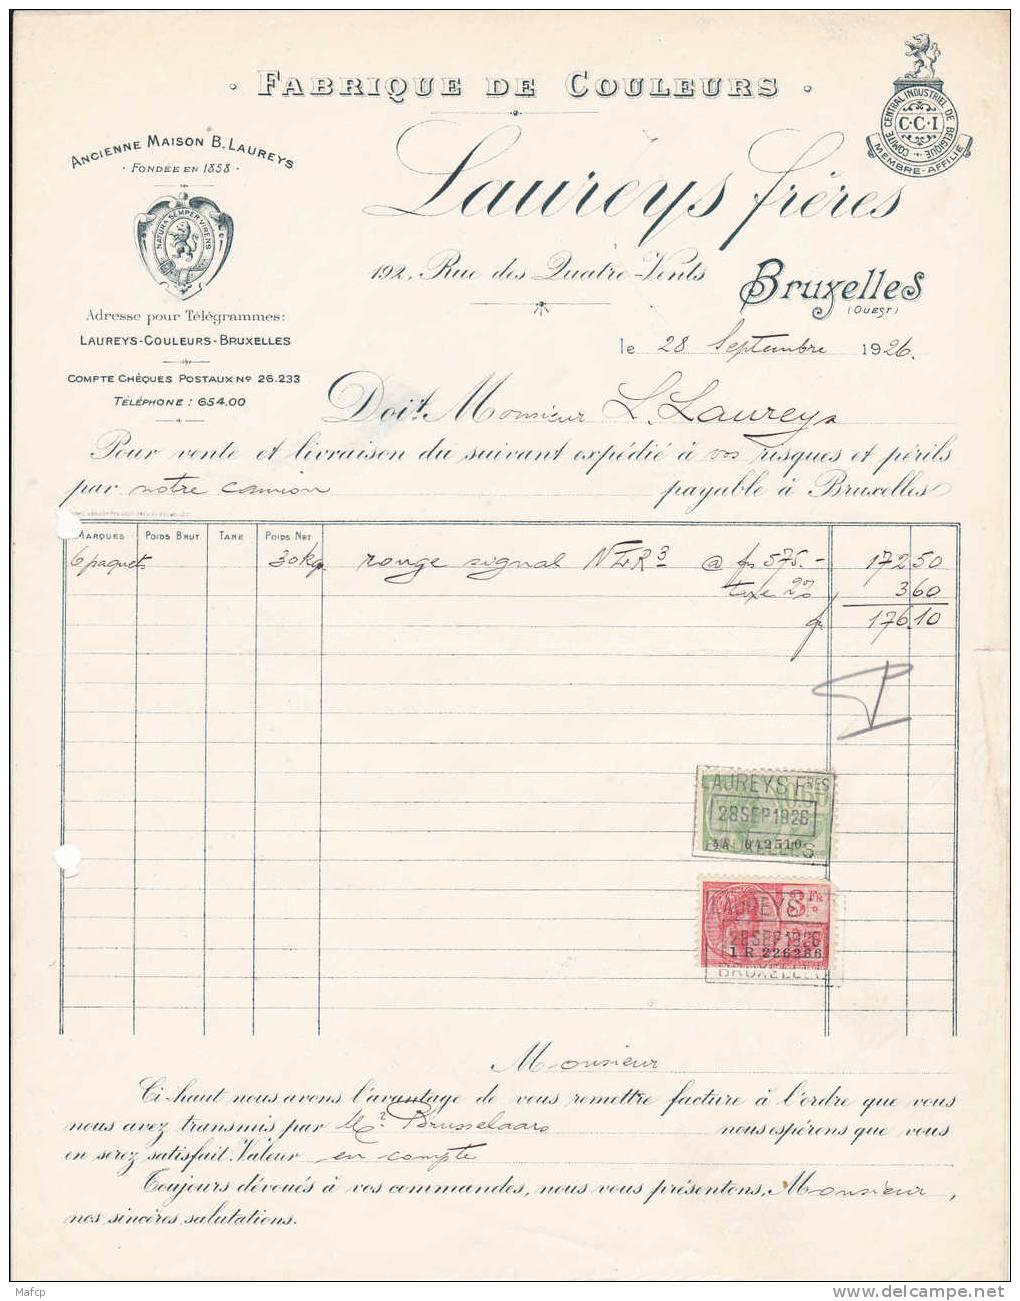 · FABRIQUE DE COULEURS ·
COMITÉ CENTRAL INDUSTRIEL DE BELGIQUE
C·C·I
MEMBRE-AFFILIÉ
ANCIENNE MAISON B. LAUREYS
· FONDÉE EN 1858 ·
NATURA SEMPER VIRENS
Laureys frères
192, Rue des Quatre-Vents
Bruxelles
(OUEST)
Adresse pour Télégrammes:
LAUREYS-COULEURS-BRUXELLES
le 28 Septembre 1926.
COMPTE CHÈQUES POSTAUX Nº 26.233
TÉLÉPHONE : 654.00
Doit Monsieur L. Laureys
Pour vente et livraison du suivant expédié à vos risques et périls
par notre camion payable à Bruxelles
MARQUES POIDS BRUT TARE POIDS NET
6 paquets 30 kg. rouge signal @ frs 575.- 172 50
taxe 2% 3 60
fr 176.10
LAUREYS FRES
28 SEP 1926
4A 042510
BRUXELLES
LAUREYS 3 FR
28 SEP 1926
1 R 226266
BRUXELLES
Monsieur
Ci-haut nous avons l'avantage de vous remettre facture à l'ordre que vous
nous avez transmis par Mr. Brusselaars nous espérons que vous
en serez satisfait. Valeur en compte
Toujours dévoués à vos commandes, nous vous présentons, Monsieur,
nos sincères salutations.
Mafcp
delcampe.net